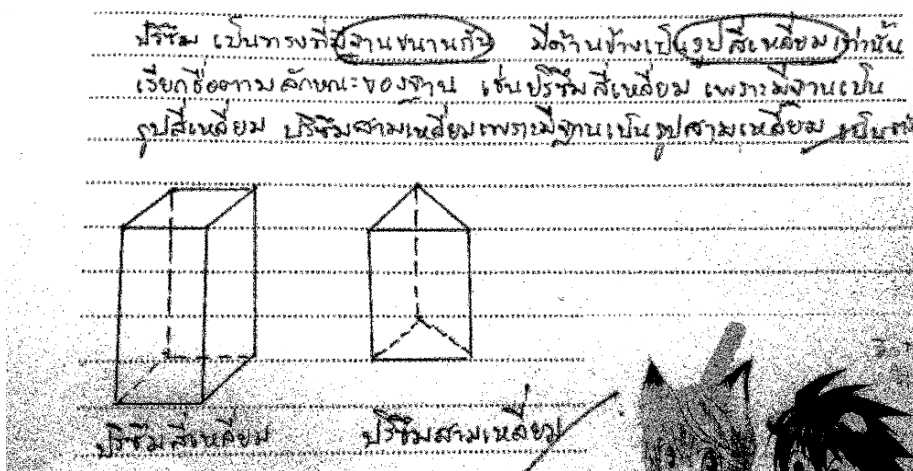 ปริซึม เป็นทรงที่มีฐานขนานกัน มีด้านข้างเป็นรูปสี่เหลี่ยมเท่านั้น
เรียกชื่อตามลักษณะของฐาน เช่นปริซึมสี่เหลี่ยม เพราะมีฐานเป็น
รูปสี่เหลี่ยม ปริซึมสามเหลี่ยมเพราะมีฐานเป็นรูปสามเหลี่ยม เป็นต้น
ปริซึมสี่เหลี่ยม ปริซึมสามเหลี่ยม